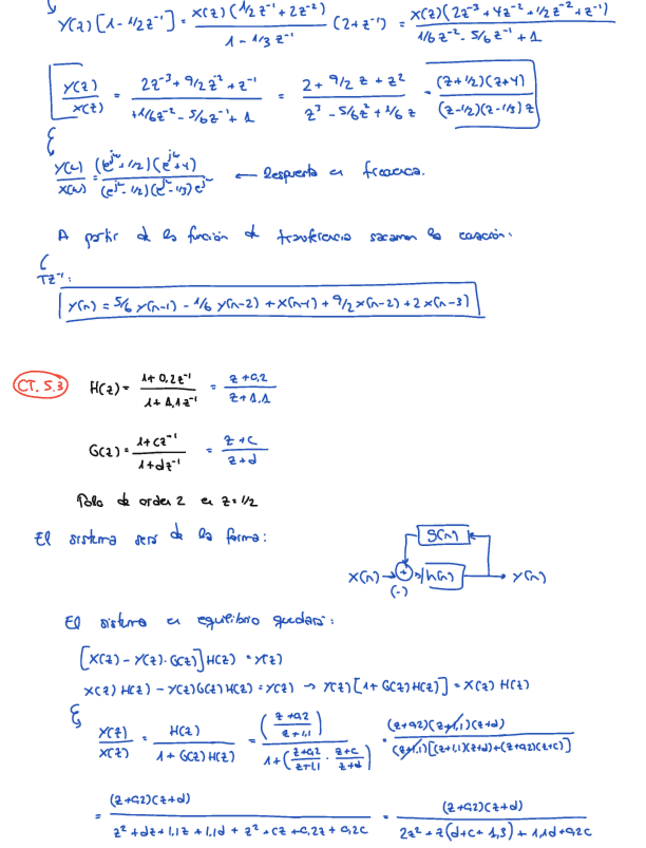 Y(z)[1 - 1/2z⁻¹] = X(z)(1/2z⁻¹ + 2z⁻²) / 1 - 1/3z⁻¹ (2+z⁻¹) = X(z)(2z⁻³ + 4z⁻² + 1/2z⁻² + z⁻¹) / 1/6z⁻² - 5/6z⁻¹ + 1
Y(z)/X(z) = 2z⁻³ + 9/2z⁻² + z⁻¹ / +1/6z⁻² - 5/6z⁻¹ + 1 = 2 + 9/2z + z² / z³ - 5/6z² + 1/6z = (z+1/2)(z+4) / (z-1/2)(z-1/3)z
Y(ω)/X(ω) = (e^jω + 1/2)(e^jω + 4) / (e^jω - 1/2)(e^jω - 1/3)e^jω ← Respuesta en frecuencia.
A partir de la función de transferencia sacamos la ecuación:
TZ⁻¹:
Y(n) = 5/6 y(n-1) - 1/6 y(n-2) + x(n-1) + 9/2 x(n-2) + 2x(n-3)
CT. 5.3 H(z) = 1+0,2z⁻¹ / 1+1,1z⁻¹ = z+0,2 / z+1,1
G(z) = 1+cz⁻¹ / 1+dz⁻¹ = z+c / z+d
Polo de orden 2 en z=1/2
El sistema será de la forma:
g(n)
x(n) → + h(n) → y(n)
(-)
El sistema en equilibrio quedará:
[X(z) - Y(z)·G(z)]H(z) = Y(z)
X(z)H(z) - Y(z)G(z)H(z) = Y(z) → Y(z)[1+G(z)H(z)] = X(z)H(z)
Y(z)/X(z) = H(z) / 1+G(z)H(z) = (z+0,2 / z+1,1) / 1+(z+0,2 / z+1,1 · z+c / z+d) = (z+0,2)(z+1,1)(z+d) / (z+1,1)[(z+1,1)(z+d)+(z+0,2)(z+c)]
= (z+0,2)(z+d) / z²+dz+1,1z+1,1d+z²+cz+0,2z+0,2c = (z+0,2)(z+d) / 2z²+z(d+c+1,3)+1,1d+0,2c